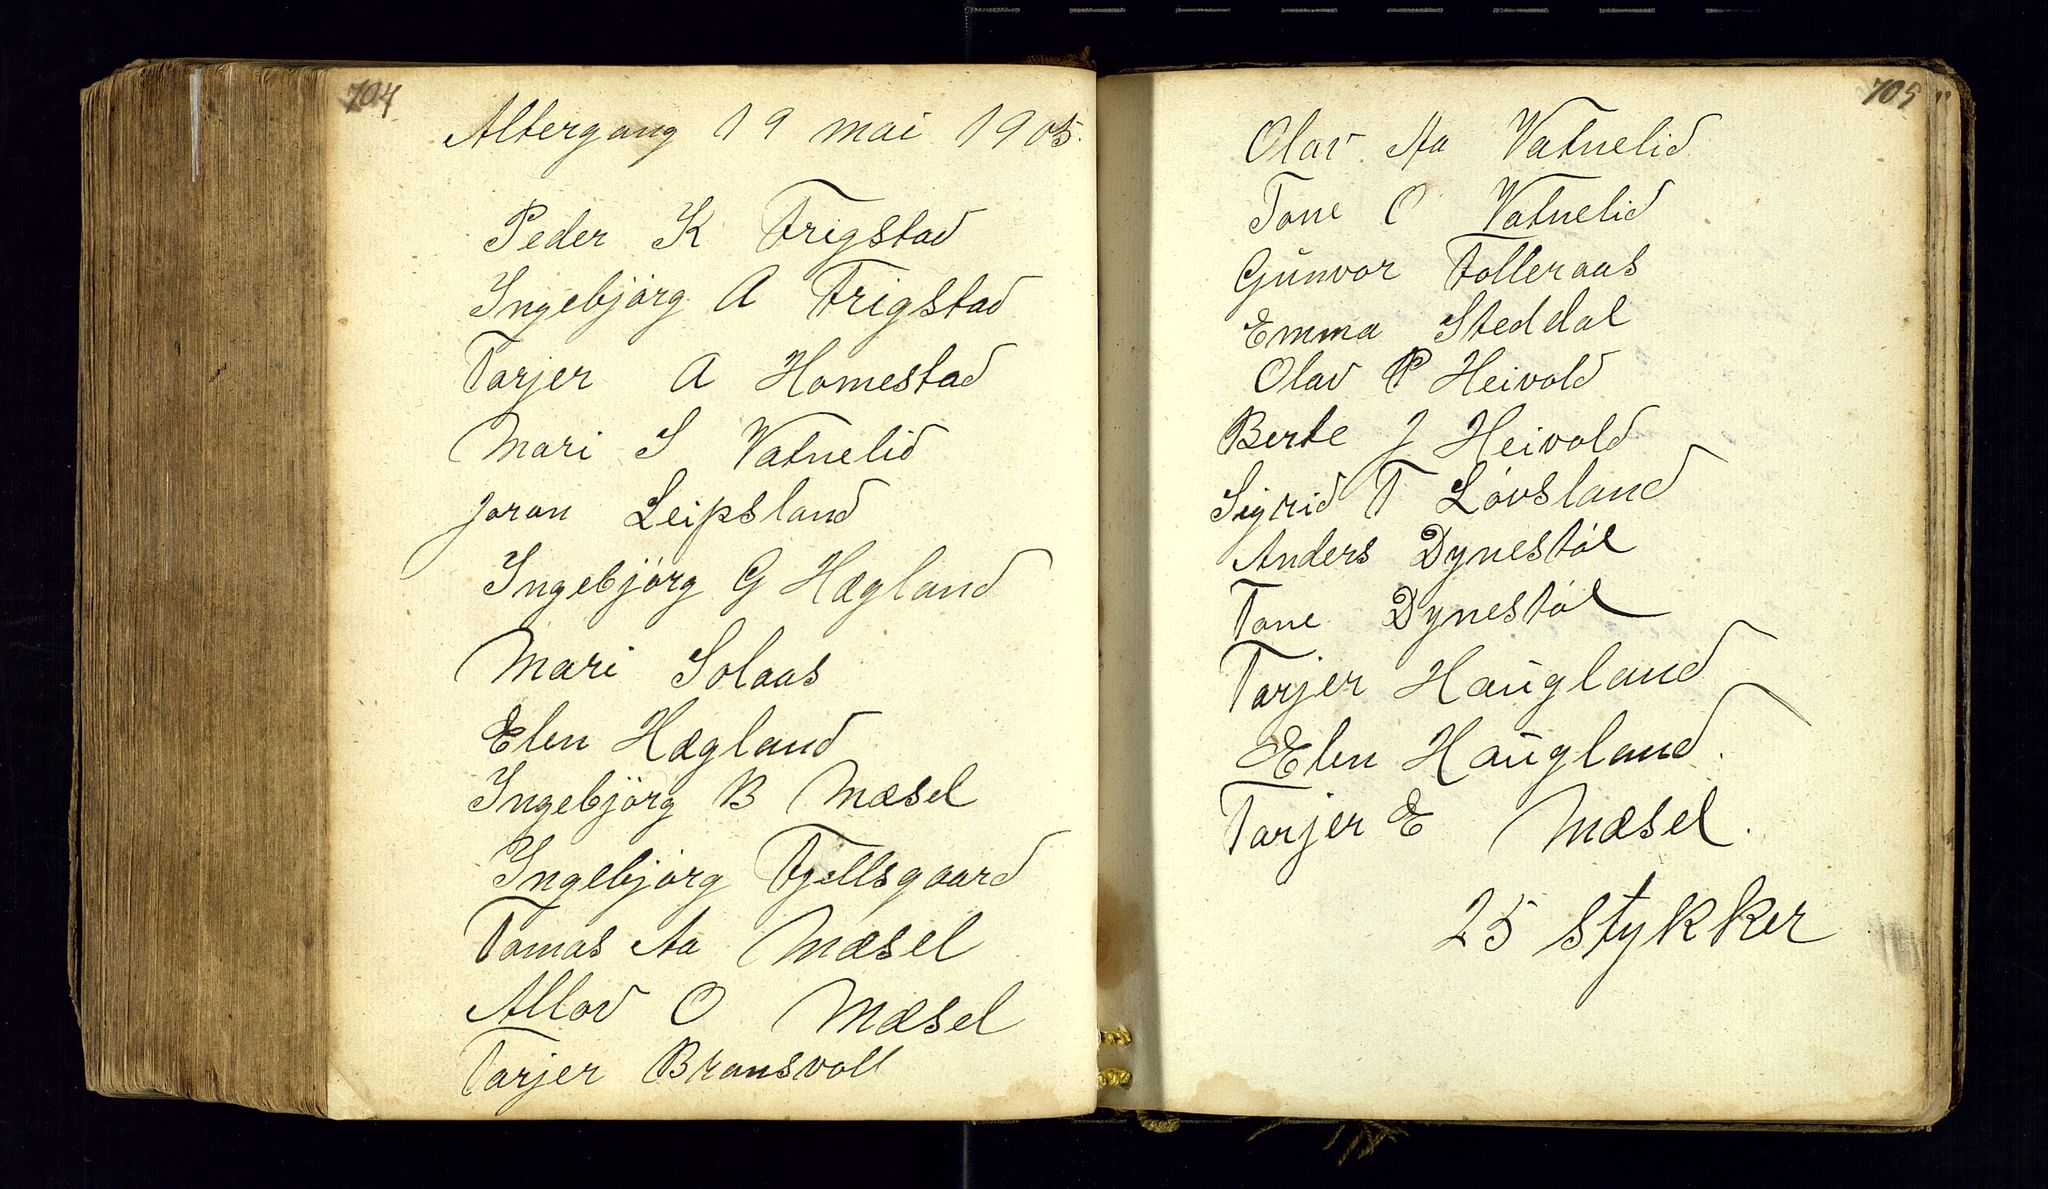 704
Altergang 19 mai 1905.
Peder K Frigstad
Ingebjörg A Frigstad
Tarjer A Homestad
Mari S Vatnelid
Joran Leipsland
Ingebjörg G Hægland
Mari Solaas
Elen Hægland
Ingebjörg B Mæsel
Ingebjörg Fjellsgaard
Tomas Aa Mæsel
Allov O Mæsel
Tarjer Bransvoll
705
Olav Aa Vatnelid
Tone O Vatnelid
Gunvor Folleraas
Emma Steddal
Olav P Heivold
Berte J Heivold
Sigrid T Lóvsland
Anders Dynestól
Tone Dynestól
Tarjer Haugland
Elen Haugland.
Tarjer E Mæsel.
25 stykker